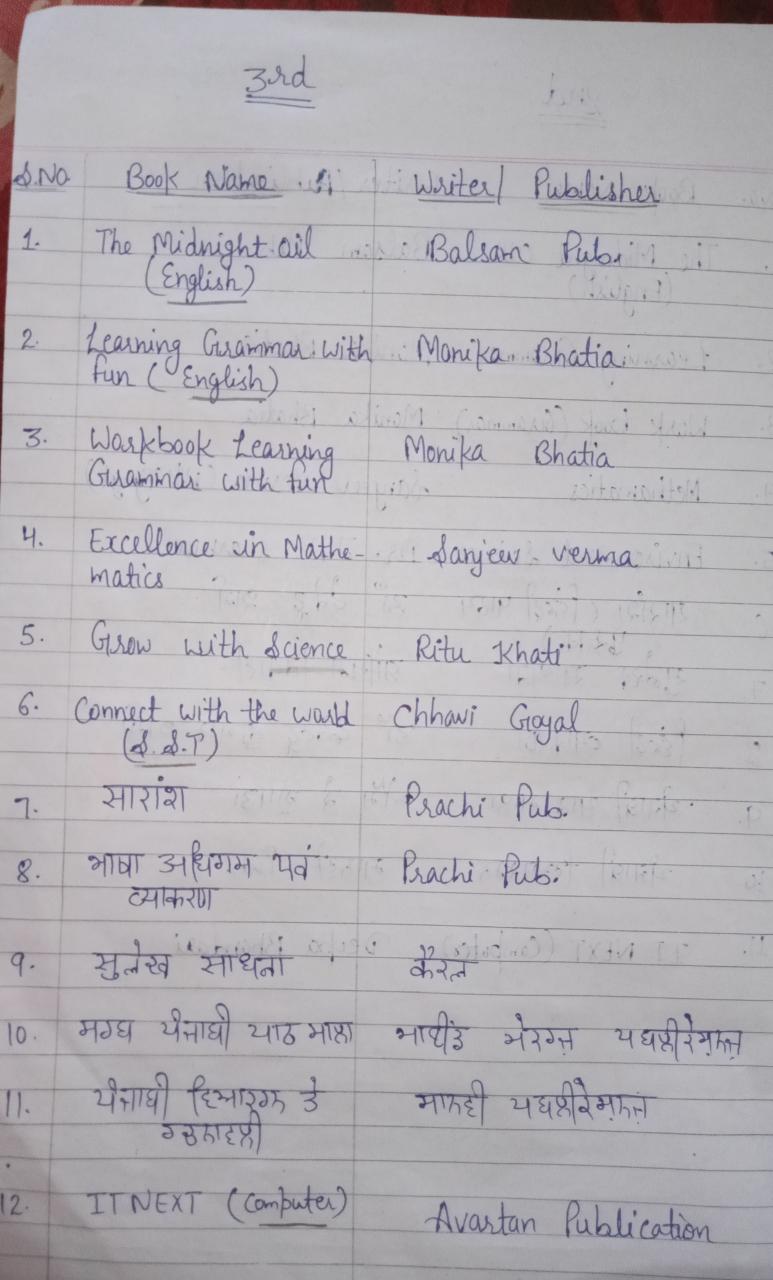 3rd
S.No Book Name Writer/ Publisher
1. The Midnight oil Balsam Pub.
(English)
2. Learning Grammar with Monika Bhatia
fun (English)
3. Workbook Learning Monika Bhatia
Grammar with fun
4. Excellence in Mathe- Sanjeev verma
matics
5. Grow with Science Ritu Khati
6. Connect with the world Chhavi Goyal
(S.S.T)
7. सारांश Prachi Pub.
8. भाषा अधिगम एवं Prachi Pub.
व्याकरण
9. सुलेख साधना कैरन
10. ਸਰਘ ਪੰਜਾਬੀ ਪਾਠ ਮਾਲਾ ਪਬਲੀਕੇਸ਼ਨਜ਼
11. ਪੰਜਾਬੀ ਵਿਆਕਰਨ ਤੇ ਪਬਲੀਕੇਸ਼ਨਜ਼
12. IT NEXT (Computer) Avartan Publication